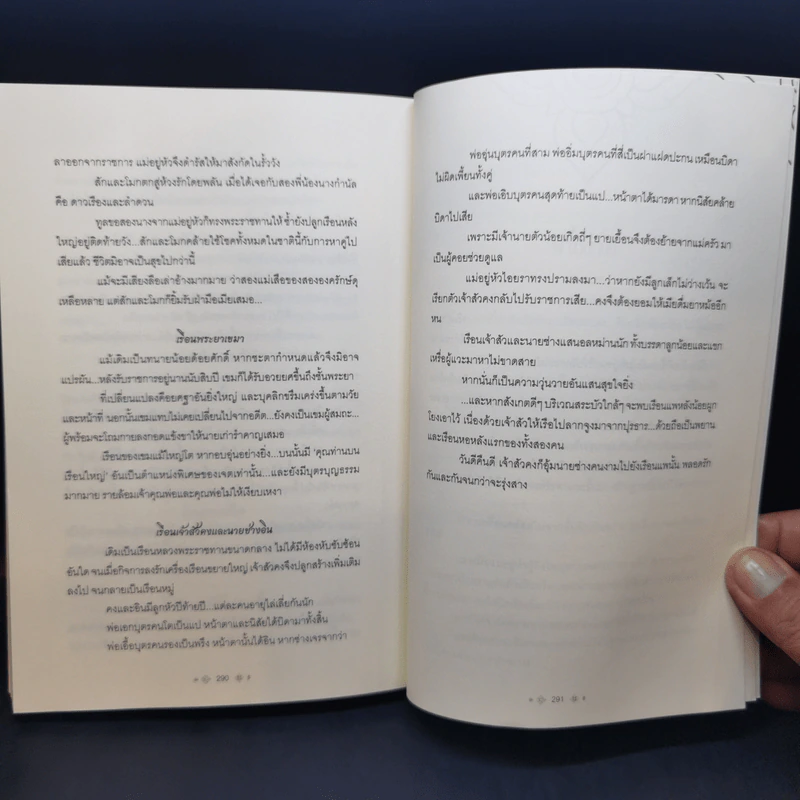 ลาออกจากราชการ แม่อยู่หัวจึงดำรัสให้มาสังกัดในรั้ววัง
สักและโมกตกสู่ห้วงรักโดยพลัน เมื่อได้เจอกับสองพี่น้องนางกำนัล
คือ ดาวเรืองและลำดวน
ทูลขอสองนางจากแม่อยู่หัวก็ทรงพระราชทานให้ ซ้ำยังปลูกเรือนหลัง
ใหญ่อยู่ติดท้ายวัง...สักและโมกคล้ายใช้โชคทั้งหมดในชาตินี้กับการหาคู่ไป
เสียแล้ว ชีวิตมิอาจเป็นสุขไปกว่านี้
แม้จะมีเสียงลือเล่าอ้างมากมาย ว่าสองแม่เสือของสององครักษ์ดุ
เหลือหลาย แต่สักและโมกก็ยิ้มรับฝ่ามือเมียเสมอ...
เรือนพระยาเขมา
แม้เดิมเป็นทนายน้อยด้อยศักดิ์ หากชะตากำหนดแล้วจึงมิอาจ
แปรผัน...หลังรับราชการอยู่นานนับสิบปี เขมก็ได้รับอวยยศขึ้นถึงชั้นพระยา
ที่เปลี่ยนแปลงคือยศฐาอันยิ่งใหญ่ และบุคลิกขรึมเคร่งขึ้นตามวัย
และหน้าที่ นอกนั้นเขมแทบไม่เคยเปลี่ยนไปจากอดีต...ยังคงเป็นเขมผู้สมถะ...
ผู้พร้อมจะโถมกายลงกอดแข้งขาให้นายเก่ารำคาญเสมอ
เรือนของเขมแม้ใหญ่โต หากอบอุ่นอย่างยิ่ง...บนนั้นมี 'คุณท่านบน
เรือนใหญ่' อันเป็นตำแหน่งพิเศษของเจตเท่านั้น...และยังมีบุตรบุญธรรม
มากมาย รายล้อมเจ้าคุณพ่อและคุณพ่อไม่ให้เงียบเหงา
เรือนเจ้าสัวคงและนายช่างอิน
เดิมเป็นเรือนหลวงพระราชทานขนาดกลาง ไม่ได้มีห้องหับซับซ้อน
อันใด จนเมื่อกิจการลงรักเครื่องเรือนขยายใหญ่ เจ้าสัวคงจึงปลูกสร้างเพิ่มเติม
ลงไป จนกลายเป็นเรือนหมู่
คงและอินมีลูกหัวปีท้ายปี...แต่ละคนอายุไล่เลี่ยกันนัก
พ่อเอกบุตรคนโตเป็นแป หน้าตาและนิสัยได้บิดามาทั้งสิ้น
พ่อเอื้อบุตรคนรองเป็นพริ้ง หน้าตานั้นได้อิน หากช่างเจรจากว่า
290
พ่ออุ่นบุตรคนที่สาม พ่ออิ่มบุตรคนที่สี่เป็นฝาแฝดปะกน เหมือนบิดา
ไม่ผิดเพี้ยนทั้งคู่
และพ่อเอิบบุตรคนสุดท้ายเป็นแป...หน้าตาได้มารดา หากนิสัยคล้าย
บิดาไปเสีย
เพราะมีเจ้านายตัวน้อยเกิดถี่ๆ ยายเยื้อนจึงต้องย้ายจากแม่ครัว มา
เป็นผู้คอยช่วยดูแล
แม่อยู่หัวไอยราทรงปรามลงมา...ว่าหากยังมีลูกเล็กไม่ว่างเว้น จะ
เรียกตัวเจ้าสัวคงกลับไปรับราชการเสีย...คงจึงต้องยอมให้เมียดื่มยาหม้ออีก
หน
เรือนเจ้าสัวและนายช่างแสนอลหม่านนัก ทั้งบรรดาลูกน้อยและแขก
เหรื่อผู้แวะมาหาไม่ขาดสาย
หากนั่นก็เป็นความวุ่นวายอันแสนสุขใจยิ่ง
...และหากสังเกตดีๆ บริเวณสระบัวใกล้ๆ จะพบเรือนแพหลังน้อยผูก
โยงเอาไว้ เนื่องด้วยเจ้าสัวให้เรือไปลากจูงมาจากปุรธาร...ด้วยถือเป็นพยาน
และเรือนหอหลังแรกของทั้งสองคน
วันดีคืนดี เจ้าสัวคงก็อุ้มนายช่างคนงามไปยังเรือนแพนั้น พลอดรัก
กันและกันจนกว่าจะรุ่งสาง
291